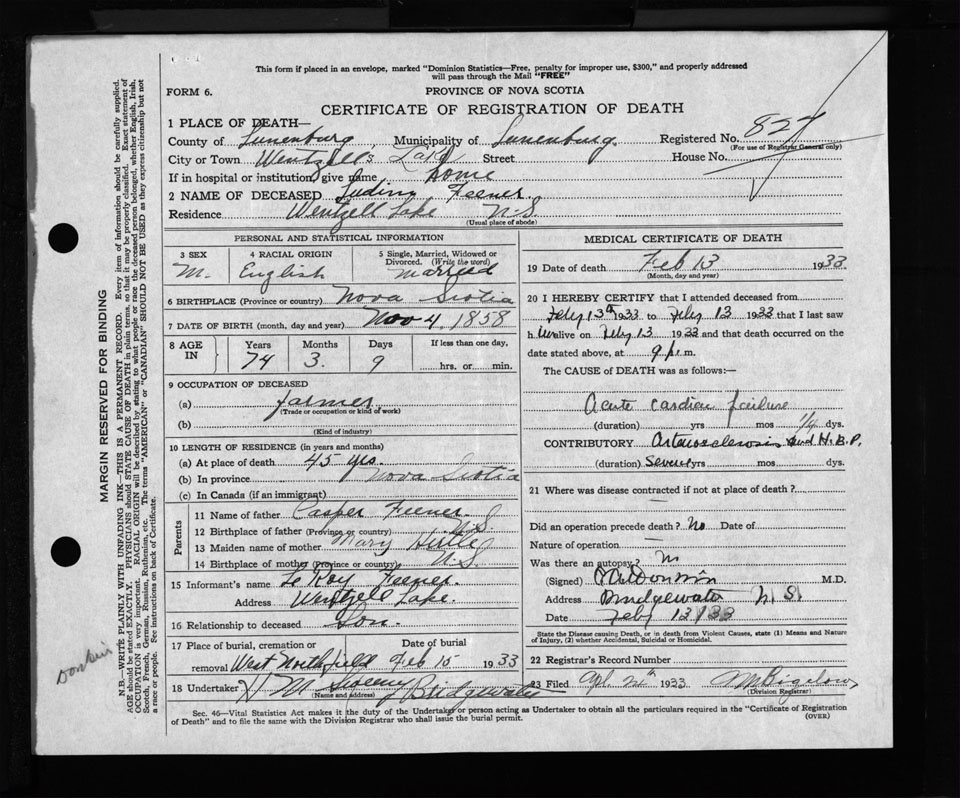 This form if placed in an envelope, marked "Dominion Statistics—Free, penalty for improper use, $300," and properly addressed
will pass through the Mail "FREE"
FORM 6.
PROVINCE OF NOVA SCOTIA
CERTIFICATE OF REGISTRATION OF DEATH
1 PLACE OF DEATH—
County of Lunenburg, Municipality of Lunenburg. Registered No. 827
(For use of Registrar General only)
City or Town Wentzell's Lake Street House No.
If in hospital or institution, give name Home
2 NAME OF DECEASED Feener.
Residence Wentzell Lake N.S.
(Usual place of abode)
PERSONAL AND STATISTICAL INFORMATION
3 SEX 4 RACIAL ORIGIN 5 Single, Married, Widowed or
Divorced. (Write the word)
M. English married
6 BIRTHPLACE (Province or country) Nova Scotia
7 DATE OF BIRTH (month, day and year) Nov 4, 1858
8 AGE IN Years Months Days If less than one day,
74 3. 9 hrs. or min.
9 OCCUPATION OF DECEASED
(a) farmer
(Trade or occupation or kind of work)
(b)
(Kind of industry)
10 LENGTH OF RESIDENCE (in years and months)
(a) At place of death 45 yrs.
(b) In province Nova Scotia
(c) In Canada (if an immigrant)
Parents
11 Name of father Casper Feener.
12 Birthplace of father (Province or country) N.S.
13 Maiden name of mother Mary Hirtle
14 Birthplace of mother (Province or country) N.S.
15 Informant's name LeRoy Feener.
Address Wentzell Lake.
16 Relationship to deceased Son.
17 Place of burial, cremation or Date of burial
removal West Northfield Feb 15 1933
18 Undertaker H M Sweeny of Bridgwater
Name and address)
MEDICAL CERTIFICATE OF DEATH
19 Date of death Feb 13 1933
(Month, day and year)
20 I HEREBY CERTIFY that I attended deceased from
Feby 13th 1933 to Feby 13 1933 that I last saw
h im alive on Feby 13 1933 and that death occurred on the
date stated above, at 9 p.m.
The CAUSE of DEATH was as follows:—
Acute cardiac failure
(duration) yrs mos 1/4 dys.
CONTRIBUTORY Arteriosclerosis and H.B.P.
(duration) Several yrs mos dys.
21 Where was disease contracted if not at place of death?
Did an operation precede death? No Date of
Nature of operation —
Was there an autopsy? No
(Signed) M.D.
Address Bridgewater N.S.
Date Feby 13/33
State the Disease causing Death, or in death from Violent Causes, state (1) Means and Nature
of Injury, (2) whether Accidental, Suicidal or Homicidal.
22 Registrar's Record Number
23 Filed Apl. 24th 1933 Bigelow
(Division Registrar)
Sec. 46—Vital Statistics Act makes it the duty of the Undertaker or person acting as Undertaker to obtain all the particulars required in the "Certificate of Registration
of Death" and to file the same with the Division Registrar who shall issue the burial permit.
(OVER)
MARGIN RESERVED FOR BINDING
N.B.—WRITE PLAINLY WITH UNFADING INK—THIS IS A PERMANENT RECORD. Every item of Information should be carefully supplied.
AGE should be stated EXACTLY. PHYSICIANS should STATE CAUSE OF DEATH in plain terms, so that it may be properly classified. Exact statement of
OCCUPATION is very important. RACIAL ORIGIN will be described by stating to what people or race the deceased person belonged, whether English, Irish,
Scotch, French, German, Russian, Ruthenian, etc. The terms "AMERICAN" or "CANADIAN" SHOULD NOT BE USED as they express citizenship but not
a race or people. See instructions on back of Certificate.
Donkin